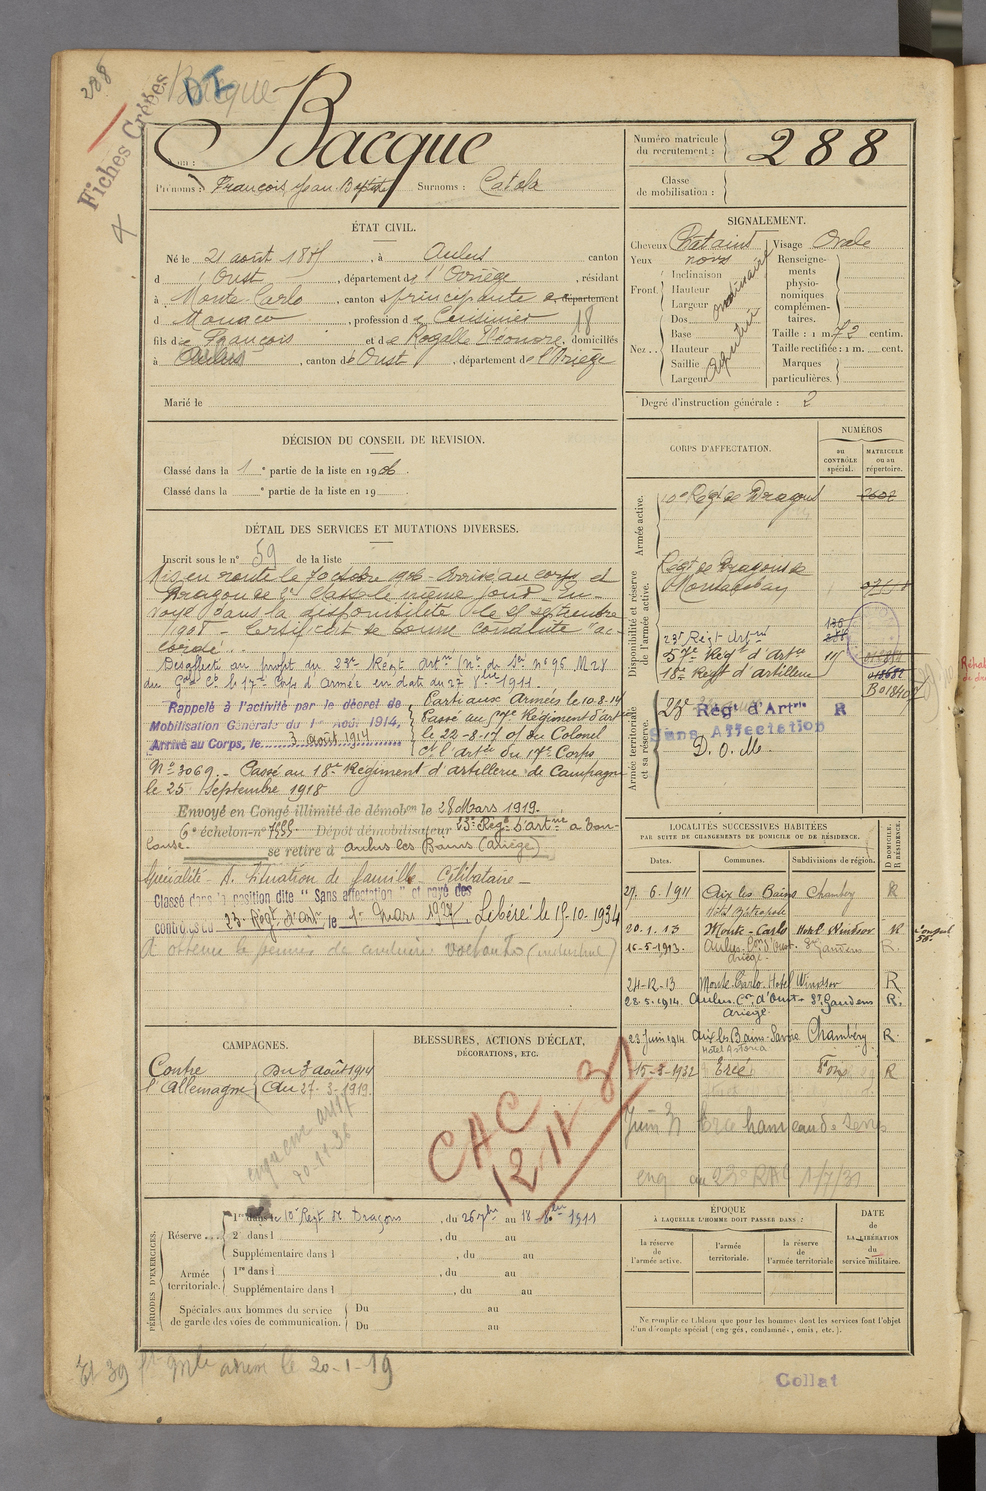 288
Bacque
DI
Fiches Créées
4
Nom :
Bacque
Prénoms : François Jean Baptiste Surnoms : Catala
Numéro matricule du recrutement : 288
Classe de mobilisation :
ÉTAT CIVIL.
Né le 21 août 188 , à Aulus canton
d'Oust , département de l'Ariège , résidant
à Monte-Carlo , canton principauté département
d Monaco , profession de Cuisinier
fils de François et de Rogalle Léonore, domiciliés
à Aulus , canton de Oust , département de l'Ariège
18
Marié le
SIGNALEMENT.
Cheveux Châtains
Yeux noirs
Front. Inclinaison
Hauteur
Largeur
ordinaire
Nez. Dos
Base
Hauteur
Saillie
Largeur
aquilin
Visage Ovale
Renseignements physionomiques complémentaires.
Taille : 1 m. 72 centim.
Taille rectifiée : 1 m. cent.
Marques particulières.
Degré d'instruction générale : 2
DÉCISION DU CONSEIL DE REVISION.
Classé dans la 1 e partie de la liste en 1906.
Classé dans la e partie de la liste en 19
DÉTAIL DES SERVICES ET MUTATIONS DIVERSES.
Inscrit sous le n° 59 de la liste
Mis en route le 7 octobre 1906 - Arrivé au corps et
Dragon de 2e classe le même jour - En-
voyé dans la disponibilité le 25 septembre
1908 - Certificat de bonne conduite "ac-
cordé".
Desaffecté au profit du 23e Régt Artie (Nt. de Son n° 96 M 28
du Gal Ct le 17e Corps d'Armée en date du 27 8bre 1911.
Rappelé à l'activité par le décret de
Mobilisation Générale du 1er Août 1914.
Arrivé au Corps, le 3 août 1914
Parti aux Armées le 10-8-14
Passé au 57e Régiment d'artie
le 22-8-17 of du Colonel
Ct l'artie du 17e Corps
N° 3069. - Passé au 18e Régiment d'artillerie de Campagne
le 25 Septembre 1918
Envoyé en Congé illimité de démobon le 28 Mars 1919.
6e échelon - n° 7555 Dépôt démobilisateur 23e Régt d'artie à Tou-
louse. se retire à Aulus les Bains (Ariège)
Spécialité - A. Situation de famille - Célibataire -
Classé dans la position dite "Sans affectation" et rayé des
contrôles du 23e Régt d'artie le 1er Mars 1927. Libéré le 15-10-1934
A obtenu le permis de conduire
CORPS D'AFFECTATION.
NUMÉROS
au CONTRÔLE spécial.
MATRICULE ou au répertoire.
Armée active.
10e Régt de Dragons
Disponibilité et réserve de l'armée active.
Régt de Dragons de
Montauban
23e Régt Artie
57e Régt d'Artie
18e Régt d'artillerie
Armée territoriale et sa réserve.
23e Régt d'Artie R
Sans Affectation
D. O. M.
LOCALITÉS SUCCESSIVES HABITÉES
PAR SUITE DE CHANGEMENTS DE DOMICILE OU DE RÉSIDENCE.
Dates. Communes. Subdivisions de région. D DOMICILE. R RÉSIDENCE.
27. 6. 1911 Aix les Bains Chambéry R
Hôtel Métropole
20. 1. 13 Monte-Carlo Hôtel Windsor R
16-5-1913. Aulus. Con d'Oust St Gaudens R.
Ariège.
24-12-13 Monte Carlo Hotel Windsor R
28. 5. 1914. Aulus. Con d'Oust St Gaudens R.
Ariège.
23 Juin 1914 Aix les Bains - Savoie Chambéry R.
Hotel Astoria
15-3-1932 Ercé Foix R
eng au 23e RAC 1/7/31
CAMPAGNES.
Contre l'Allemagne
Du 3 août 1914
Au 27-3-1919.
20-11-36
BLESSURES, ACTIONS D'ÉCLAT,
DÉCORATIONS, ETC.
CAC
12-11-31
PÉRIODES D'EXERCICES.
Réserve... 1re dans le 10e Régt de Dragons , du 26 7bre au 18 8bre 1911
2e dans l , du au
Supplémentaire dans l , du au
Armée territoriale. 1re dans l , du au
Supplémentaire dans l , du au
Spéciales aux hommes du service
de garde des voies de communication. Du au
Du au
ÉPOQUE
À LAQUELLE L'HOMME DOIT PASSER DANS :
la réserve de l'armée active.
l'armée territoriale.
la réserve de l'armée territoriale
DATE de LA LIBÉRATION du service militaire.
Ne remplir ce tableau que pour les hommes dont les services font l'objet
d'un décompte spécial (engagés, condamnés, omis, etc.).
le 20-1-19
Collat